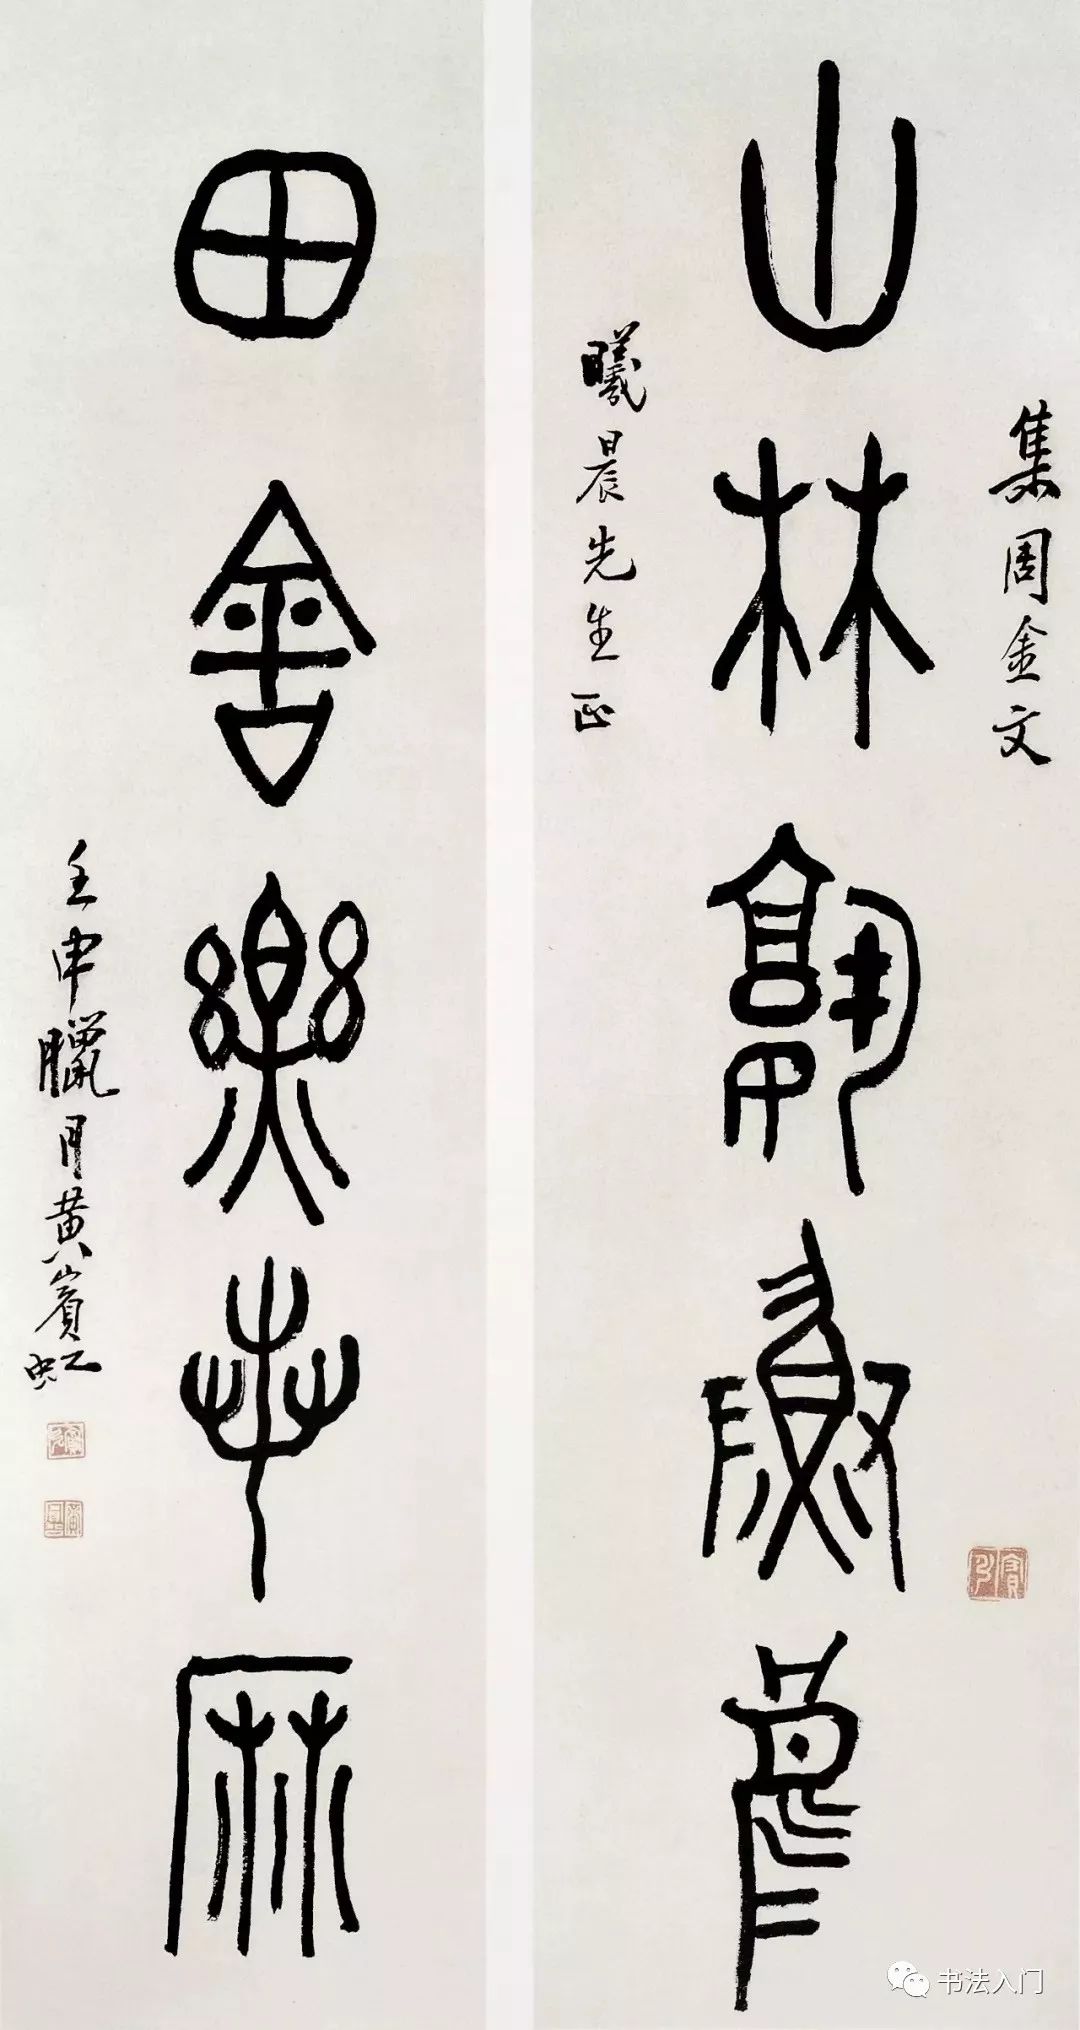 集周金文
山林
曦晨先生正
田舍樂桑麻
壬申臘月黃賓虹
书法入门